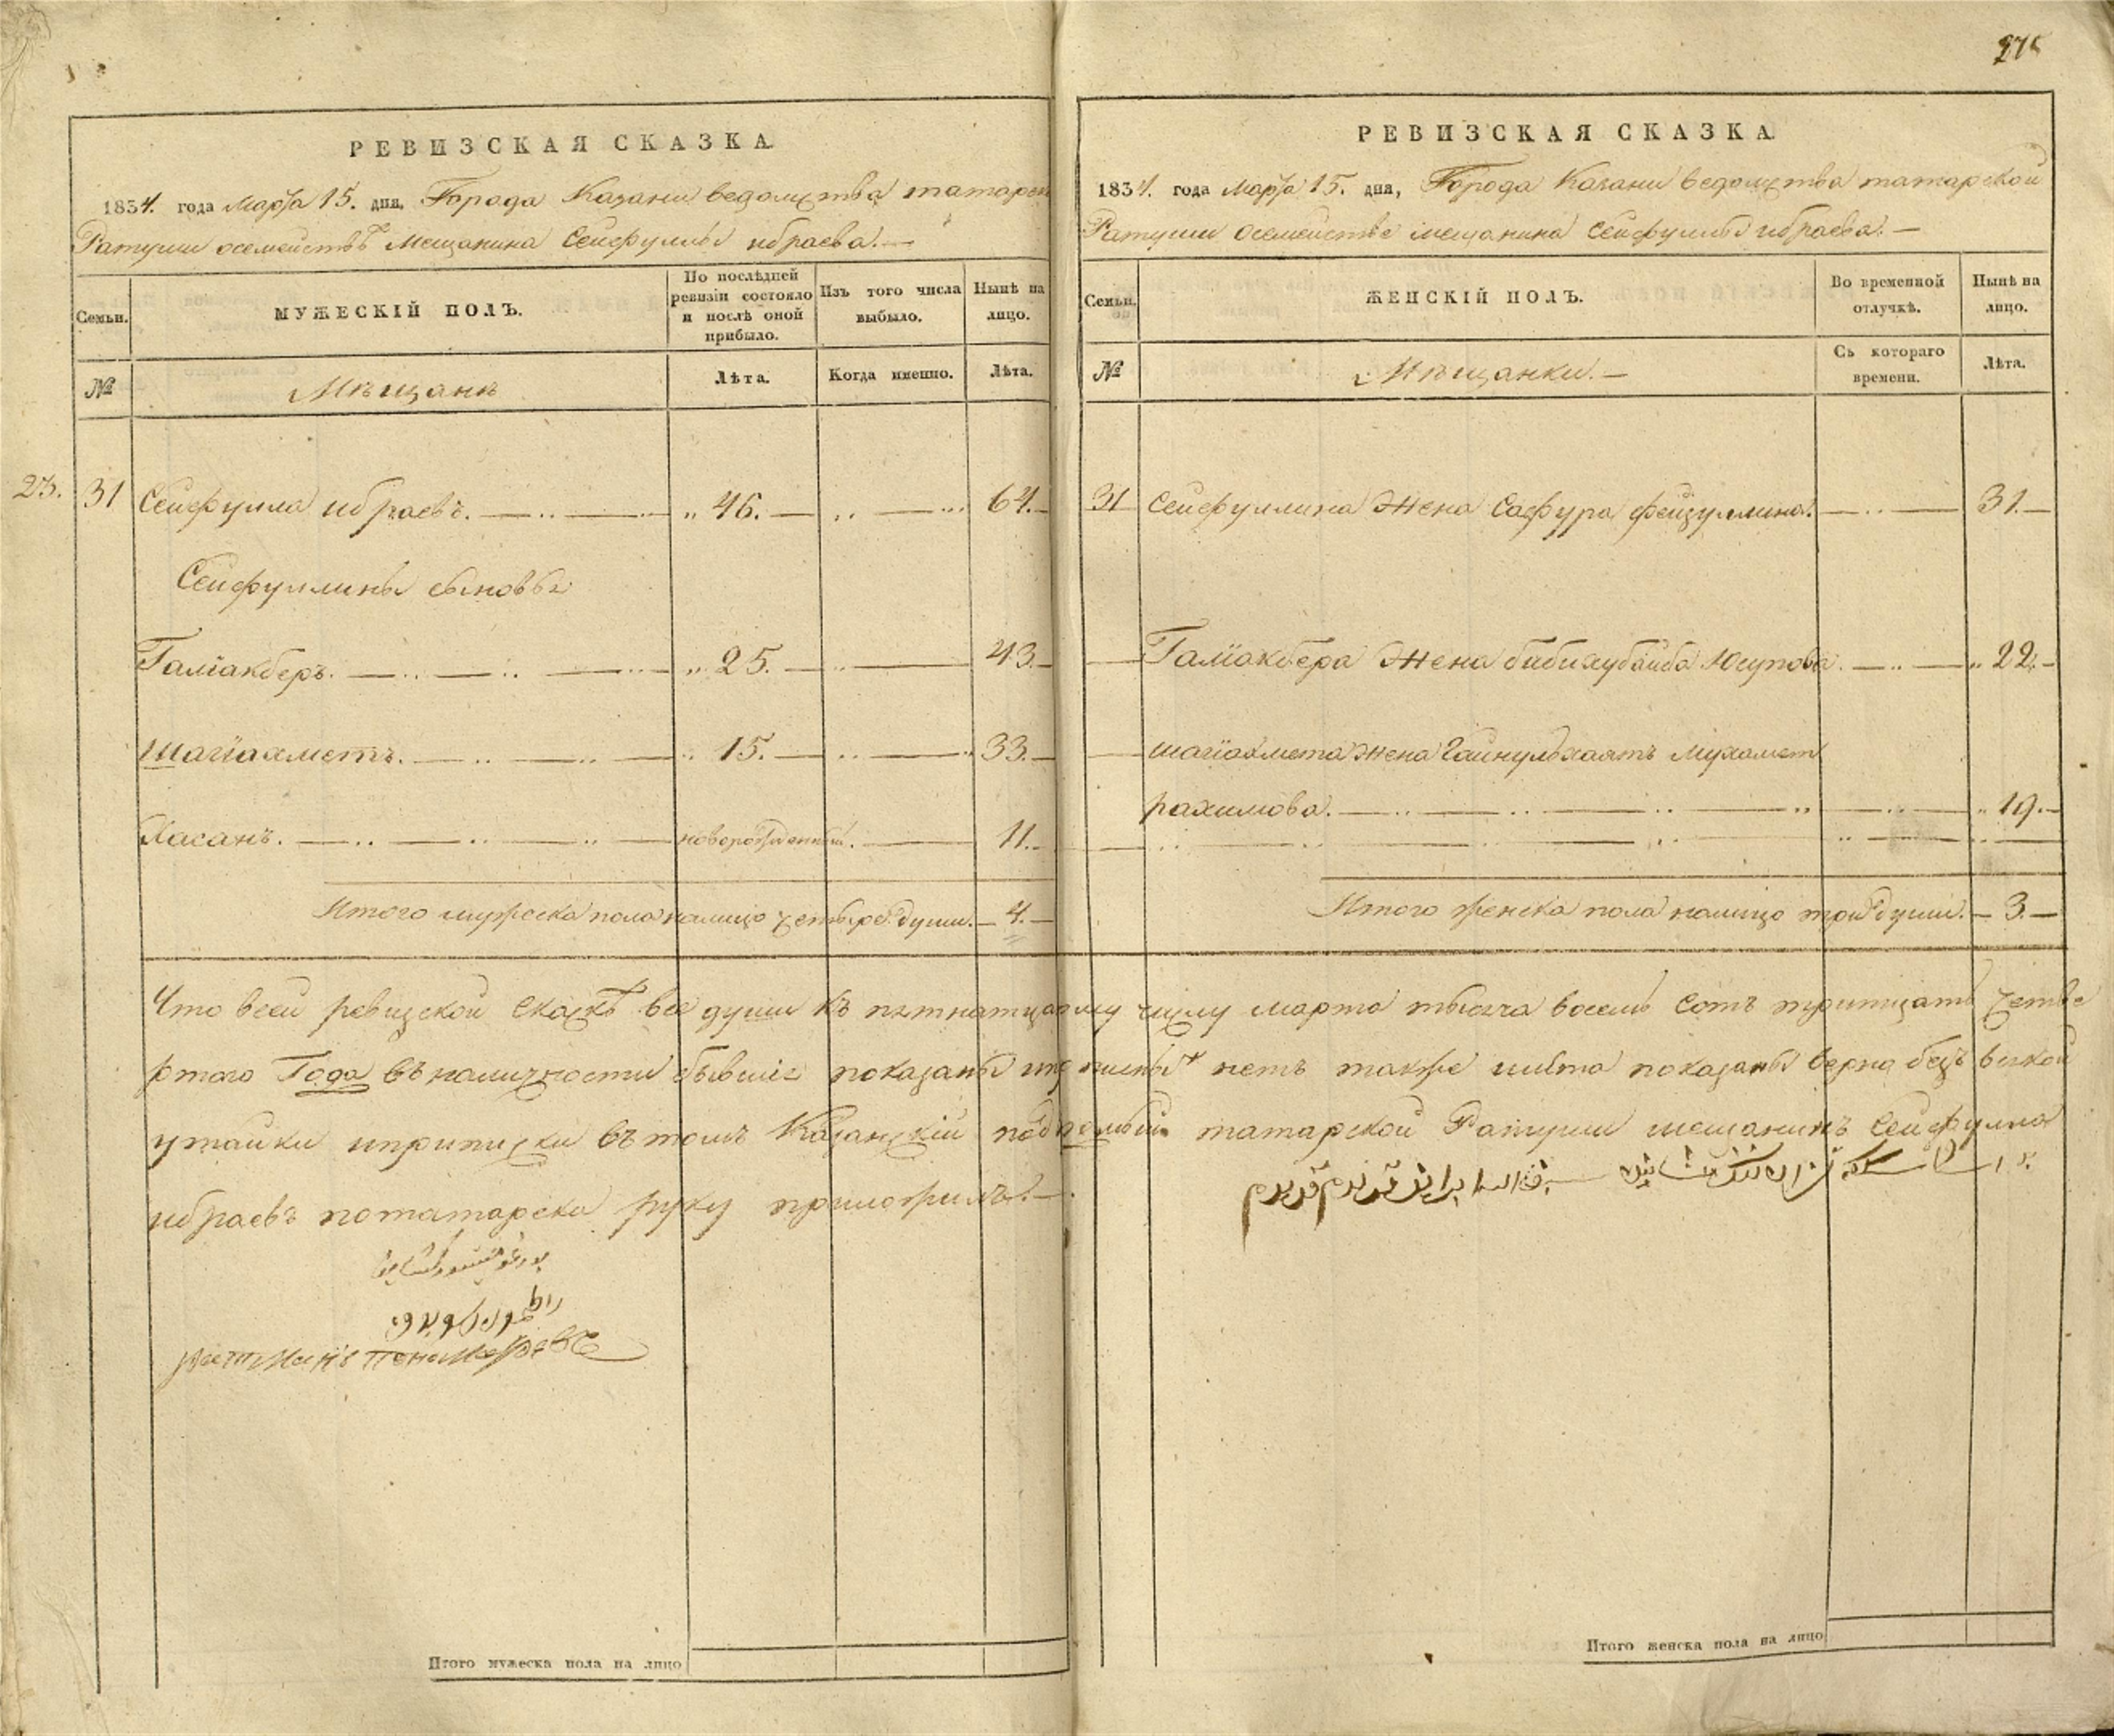 275
РЕВИЗСКАЯ СКАЗКА
1834. года Марта 15. дня, Города Казани ведомства татарской
Ратуши осемействѣ Мещанина Сейфуллы ибраева.—
Семьи. МУЖЕСКІЙ ПОЛЪ. По послѣдней ревизіи состояло и послѣ оной прибыло. Изъ того числа выбыло. Нынѣ на лицо.
№ Мѣщанѣ Лѣта. Когда именно. Лѣта.
23. 31 Сейфулла ибраевъ. 46. 64.
Сейфуллины сыновья
Галіакберъ. 25. 43.
Шагіахметъ. 15. 33.
Хасанъ. новорожденный. 11.
Итого мужеска пола налицо четыре души. 4.
РЕВИЗСКАЯ СКАЗКА
1834. года Марта 15. дня, Города Казани ведомства татарской
Ратуши осемействе мещанина Сейфуллы ибраева.—
Семьи. ЖЕНСКІЙ ПОЛЪ. Во временной отлучкѣ. Нынѣ на лицо.
№ Мѣщанки.— Съ котораго времени. Лѣта.
31 Сейфуллина Жена Сафура фейзуллина. 31.
Галіакбера Жена Юсупова. 22.
шагіахмета Жена Гайнульхаятъ Мухамет
рахимова. 19.
Итого женска пола налицо три души. 3.
Что всей ревизской Сказкѣ все души къ пятнатцатому числу марта тысяча восемь сотъ тритцать четве
ртого Года въ наличности бывшіе показаны нетъ также лѣта показаны верно безъ всякой
утайки иприписки въ томъ Казанскій татарской Ратуши мещанинъ Сейфулла
ибраевъ потатарски руку приложилъ.—
Итого мужеска пола на лицо
Итого женска пола на лицо